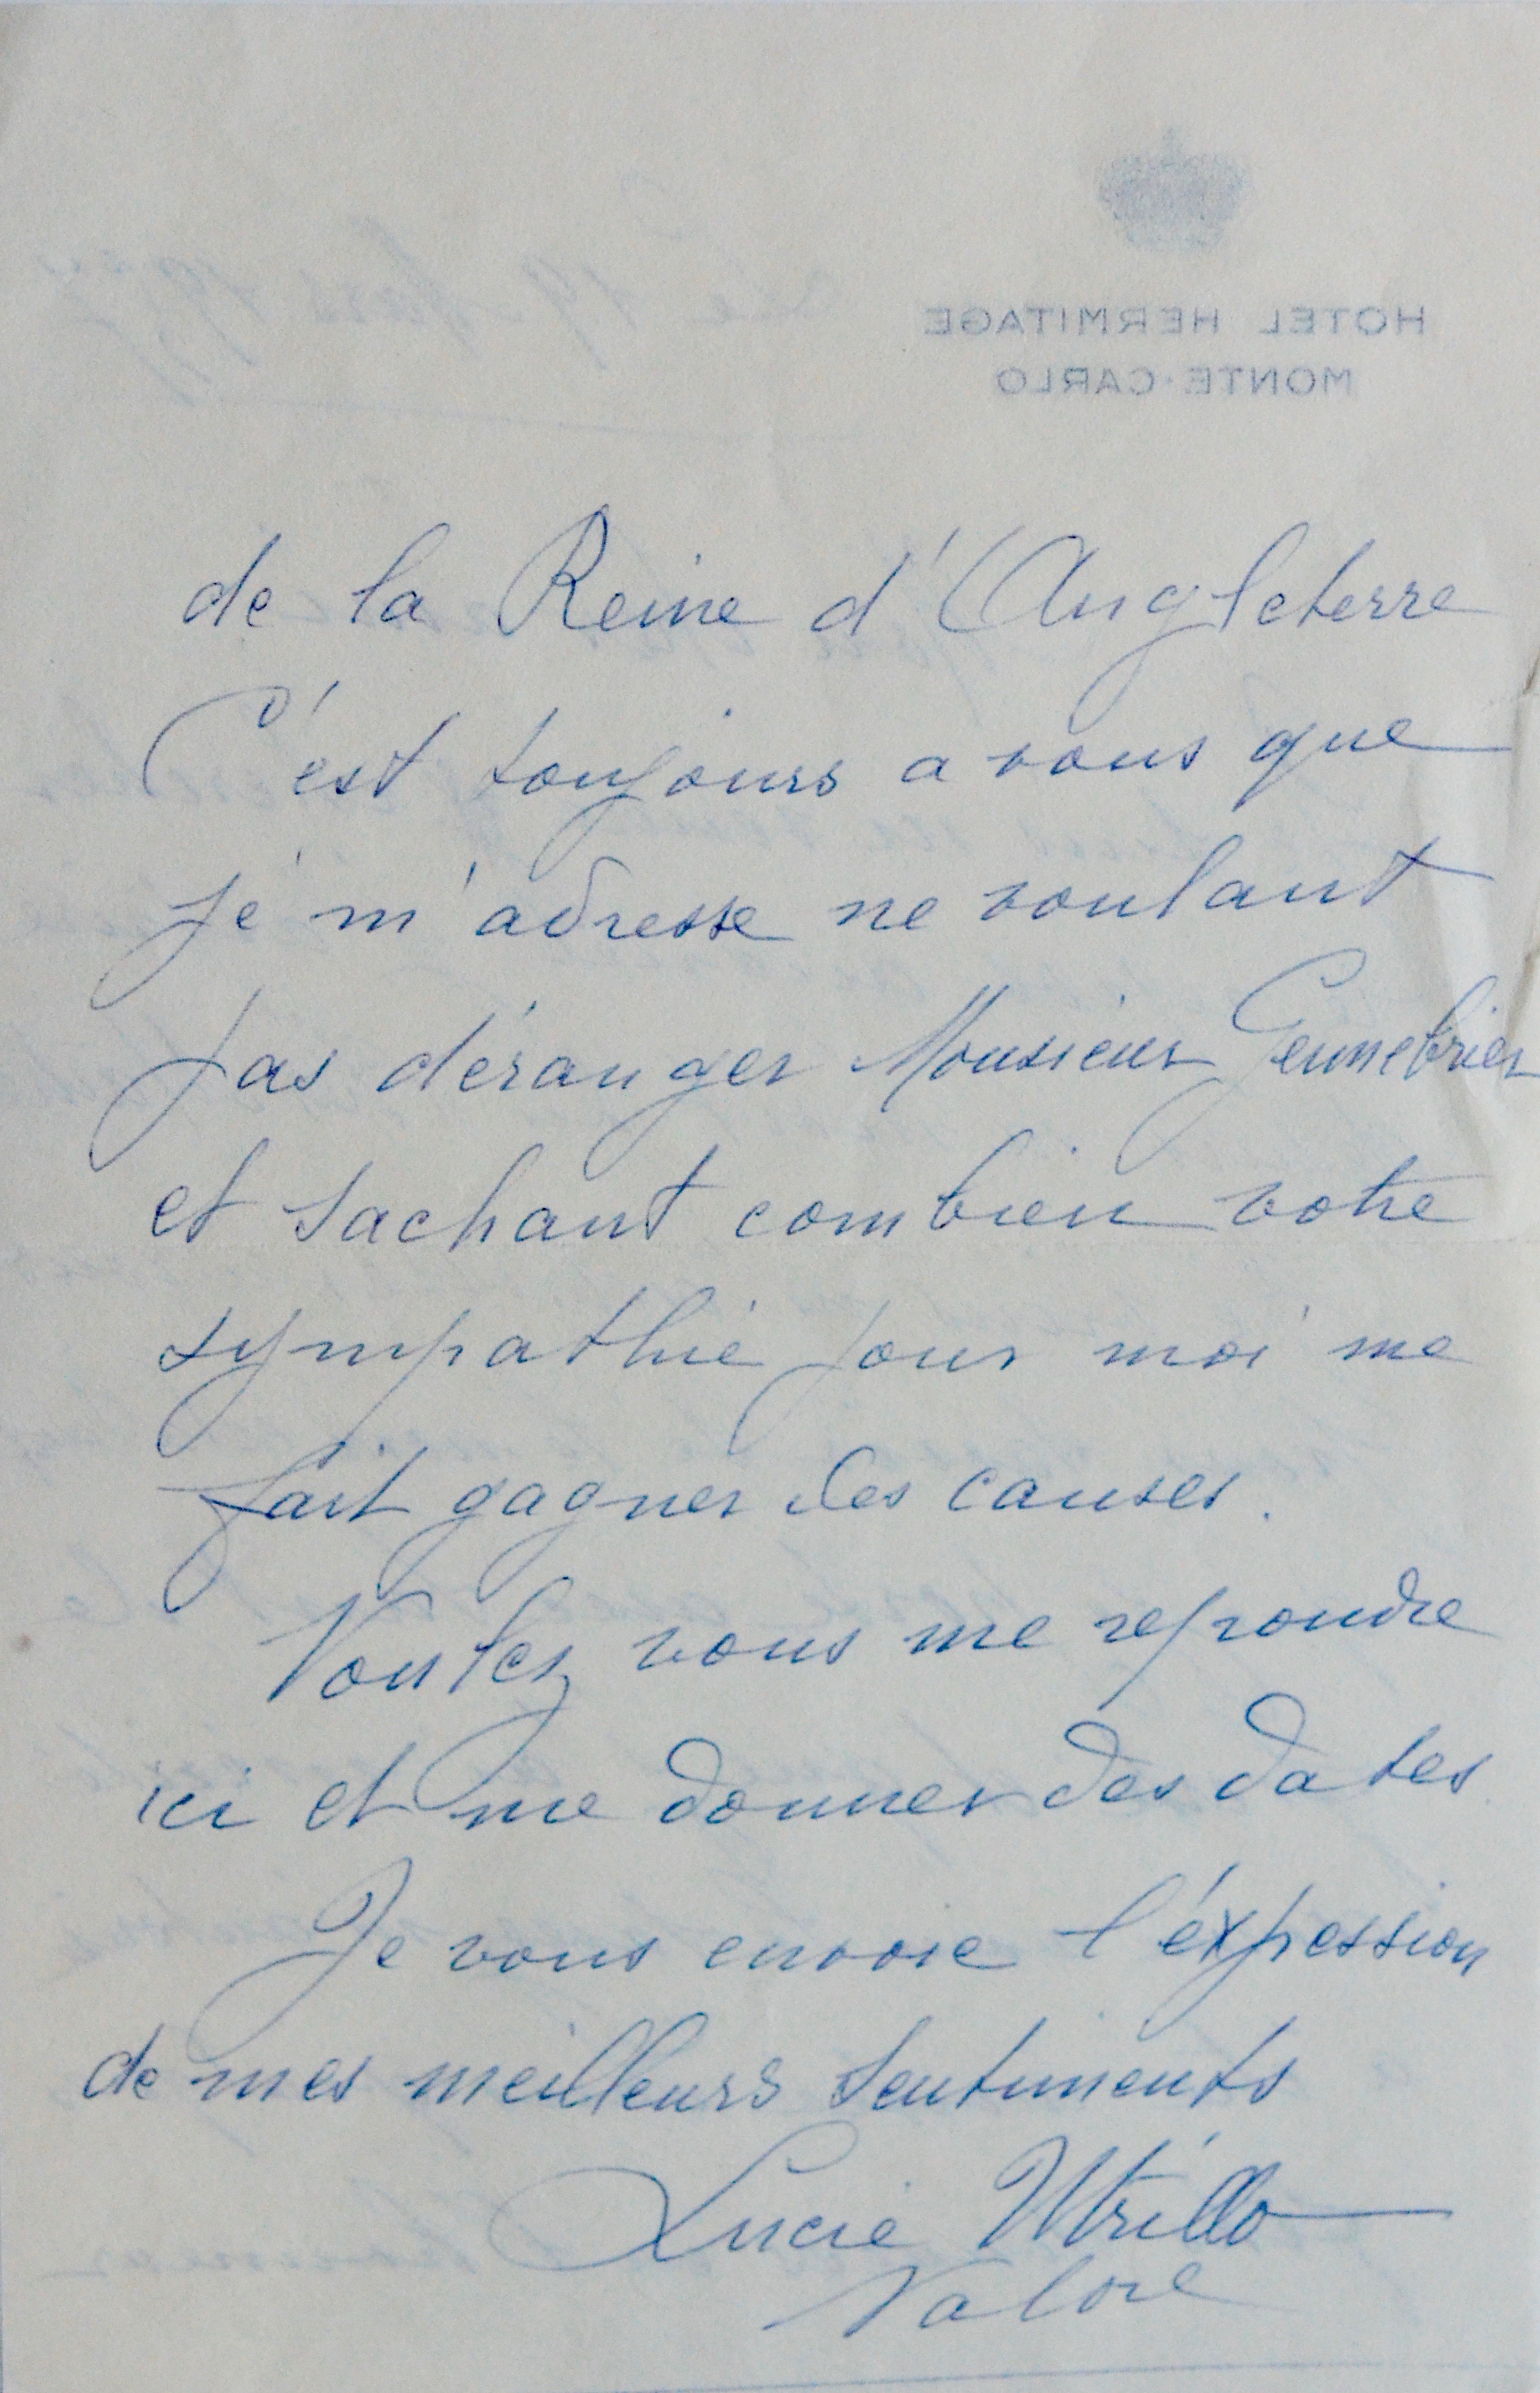 HOTEL HERMITAGE
MONTE-CARLO
de la Reine d'Angleterre
C'est toujours a vous que
je m'adresse ne voulant
pas déranger Monsieur
et sachant combien votre
sympathie pour moi me
fait gagner les causes.
Voulez vous me repondre
ici et me donner des dates
Je vous envoie l'éxpession
de mes meilleurs sentiments
Lucie Utrillo
Valore